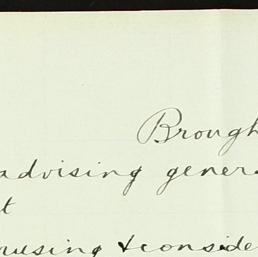 Brough
advising genera
t
rusing & conside